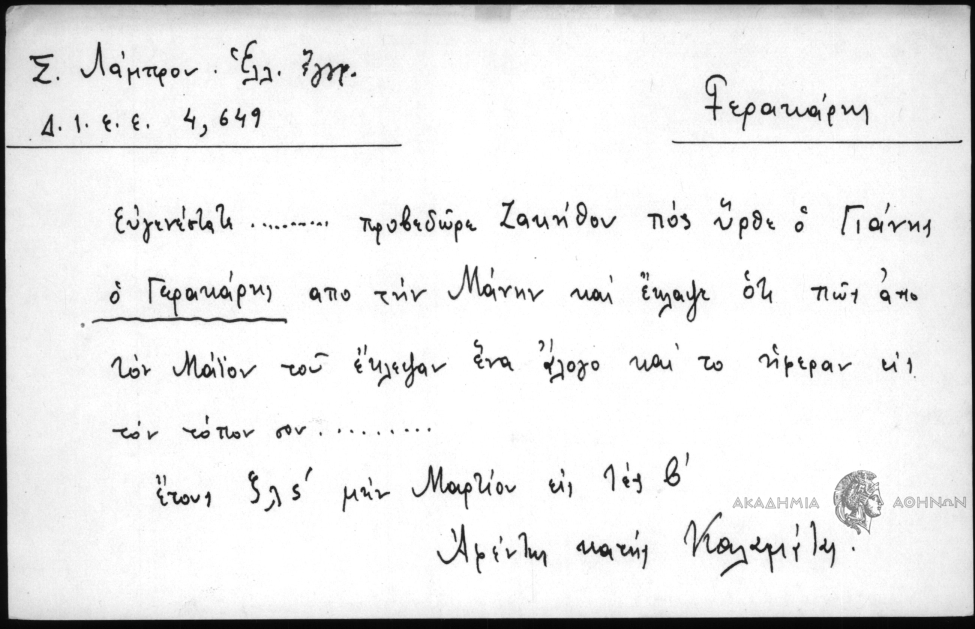 Σ. Λάμπρου. Ἑλλ. Ἔγγρ.
Δ. Ι. Ε. Ε. 4, 649
Γερακάρης
Εὐγενέστατε .......... προβεδῶρε Ζακήθου πός ἤρθε ὁ Γιάνης
ὁ Γερακάρης απο τήν Μάνην καί ἔκλαψε ὅτι πῶς ἀπο
τόν Μάϊον τοῦ ἔκλεψαν ἕνα ἄλογο καί το ἤφεραν εἰς
τόν τόπον σου..........
ἔτους ϛλϛ' μήν Μαρτίου εἰς τές β'
Ἀφέντης κατής Καλαμάτας.
ΑΚΑΔΗΜΙΑ ΑΘΗΝΩΝ